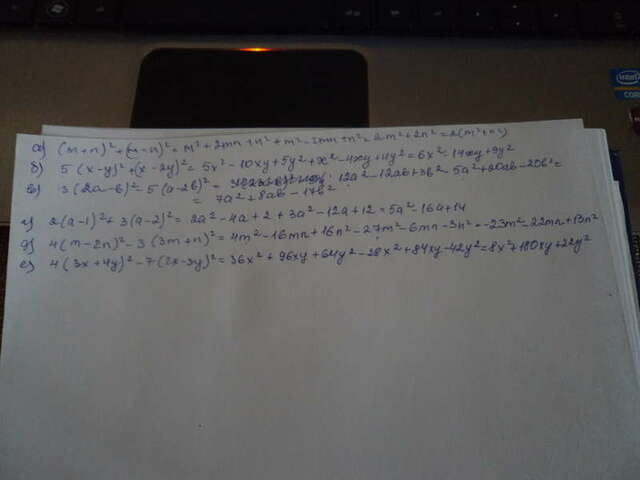 а) (m+n)² + (m-n)² = m² + 2mn + n² + m² - 2mn + n² = 2m² + 2n² = 2(m²+n²)
б) 5(x-y)² + (x-2y)² = 5x² - 10xy + 5y² + x² - 4xy + 4y² = 6x² - 14xy + 9y²
в) 3(2a-b)² - 5(a-2b)² = 12a² - 12ab + 3b² - 5a² + 20ab - 20b² =
= 7a² + 8ab - 17b²
г) 2(a-1)² + 3(a-2)² = 2a² - 4a + 2 + 3a² - 12a + 12 = 5a² - 16a + 14
д) 4(m-2n)² - 3(3m+n)² = 4m² - 16mn + 16n² - 27m² - 6mn - 3n² = -23m² - 22mn + 13n²
е) 4(3x+4y)² - 7(2x-3y)² = 36x² + 96xy + 64y² - 28x² + 84xy - 42y² = 8x² + 180xy + 22y²
intel
CORE